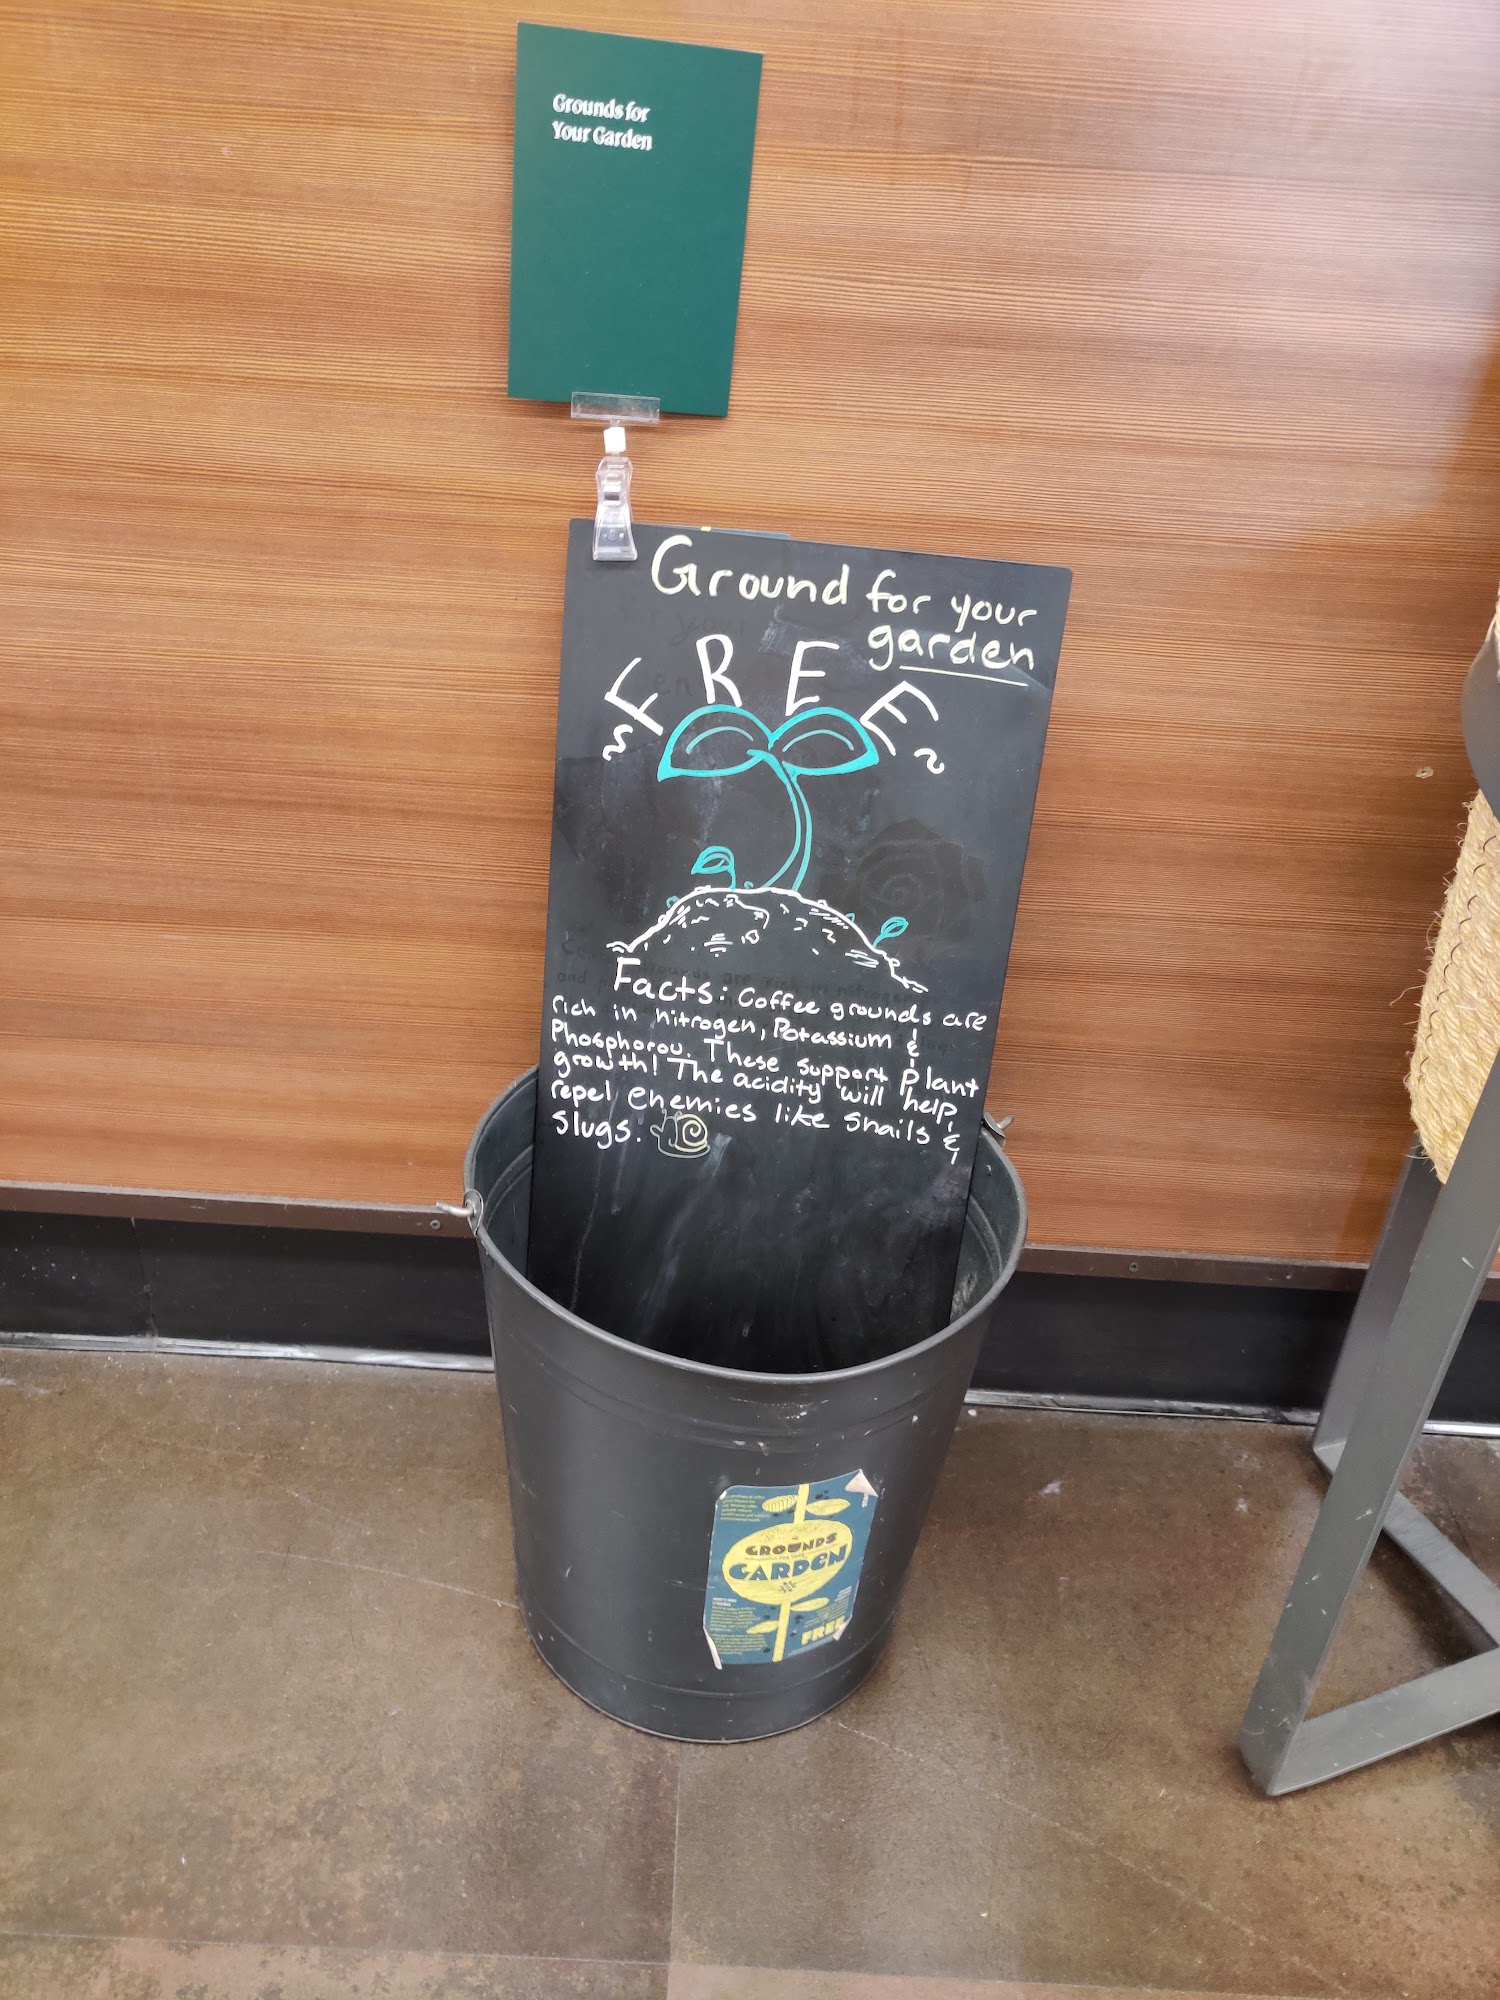 Grounds for
Your Garden
Ground for your
garden
~FREE~
Facts: Coffee grounds are
rich in nitrogen, Potassium &
Phosphorou. These support Plant
growth! The acidity will help
repel enemies like snails &
slugs.
GROUNDS
FOR YOUR
GARDEN
FREE